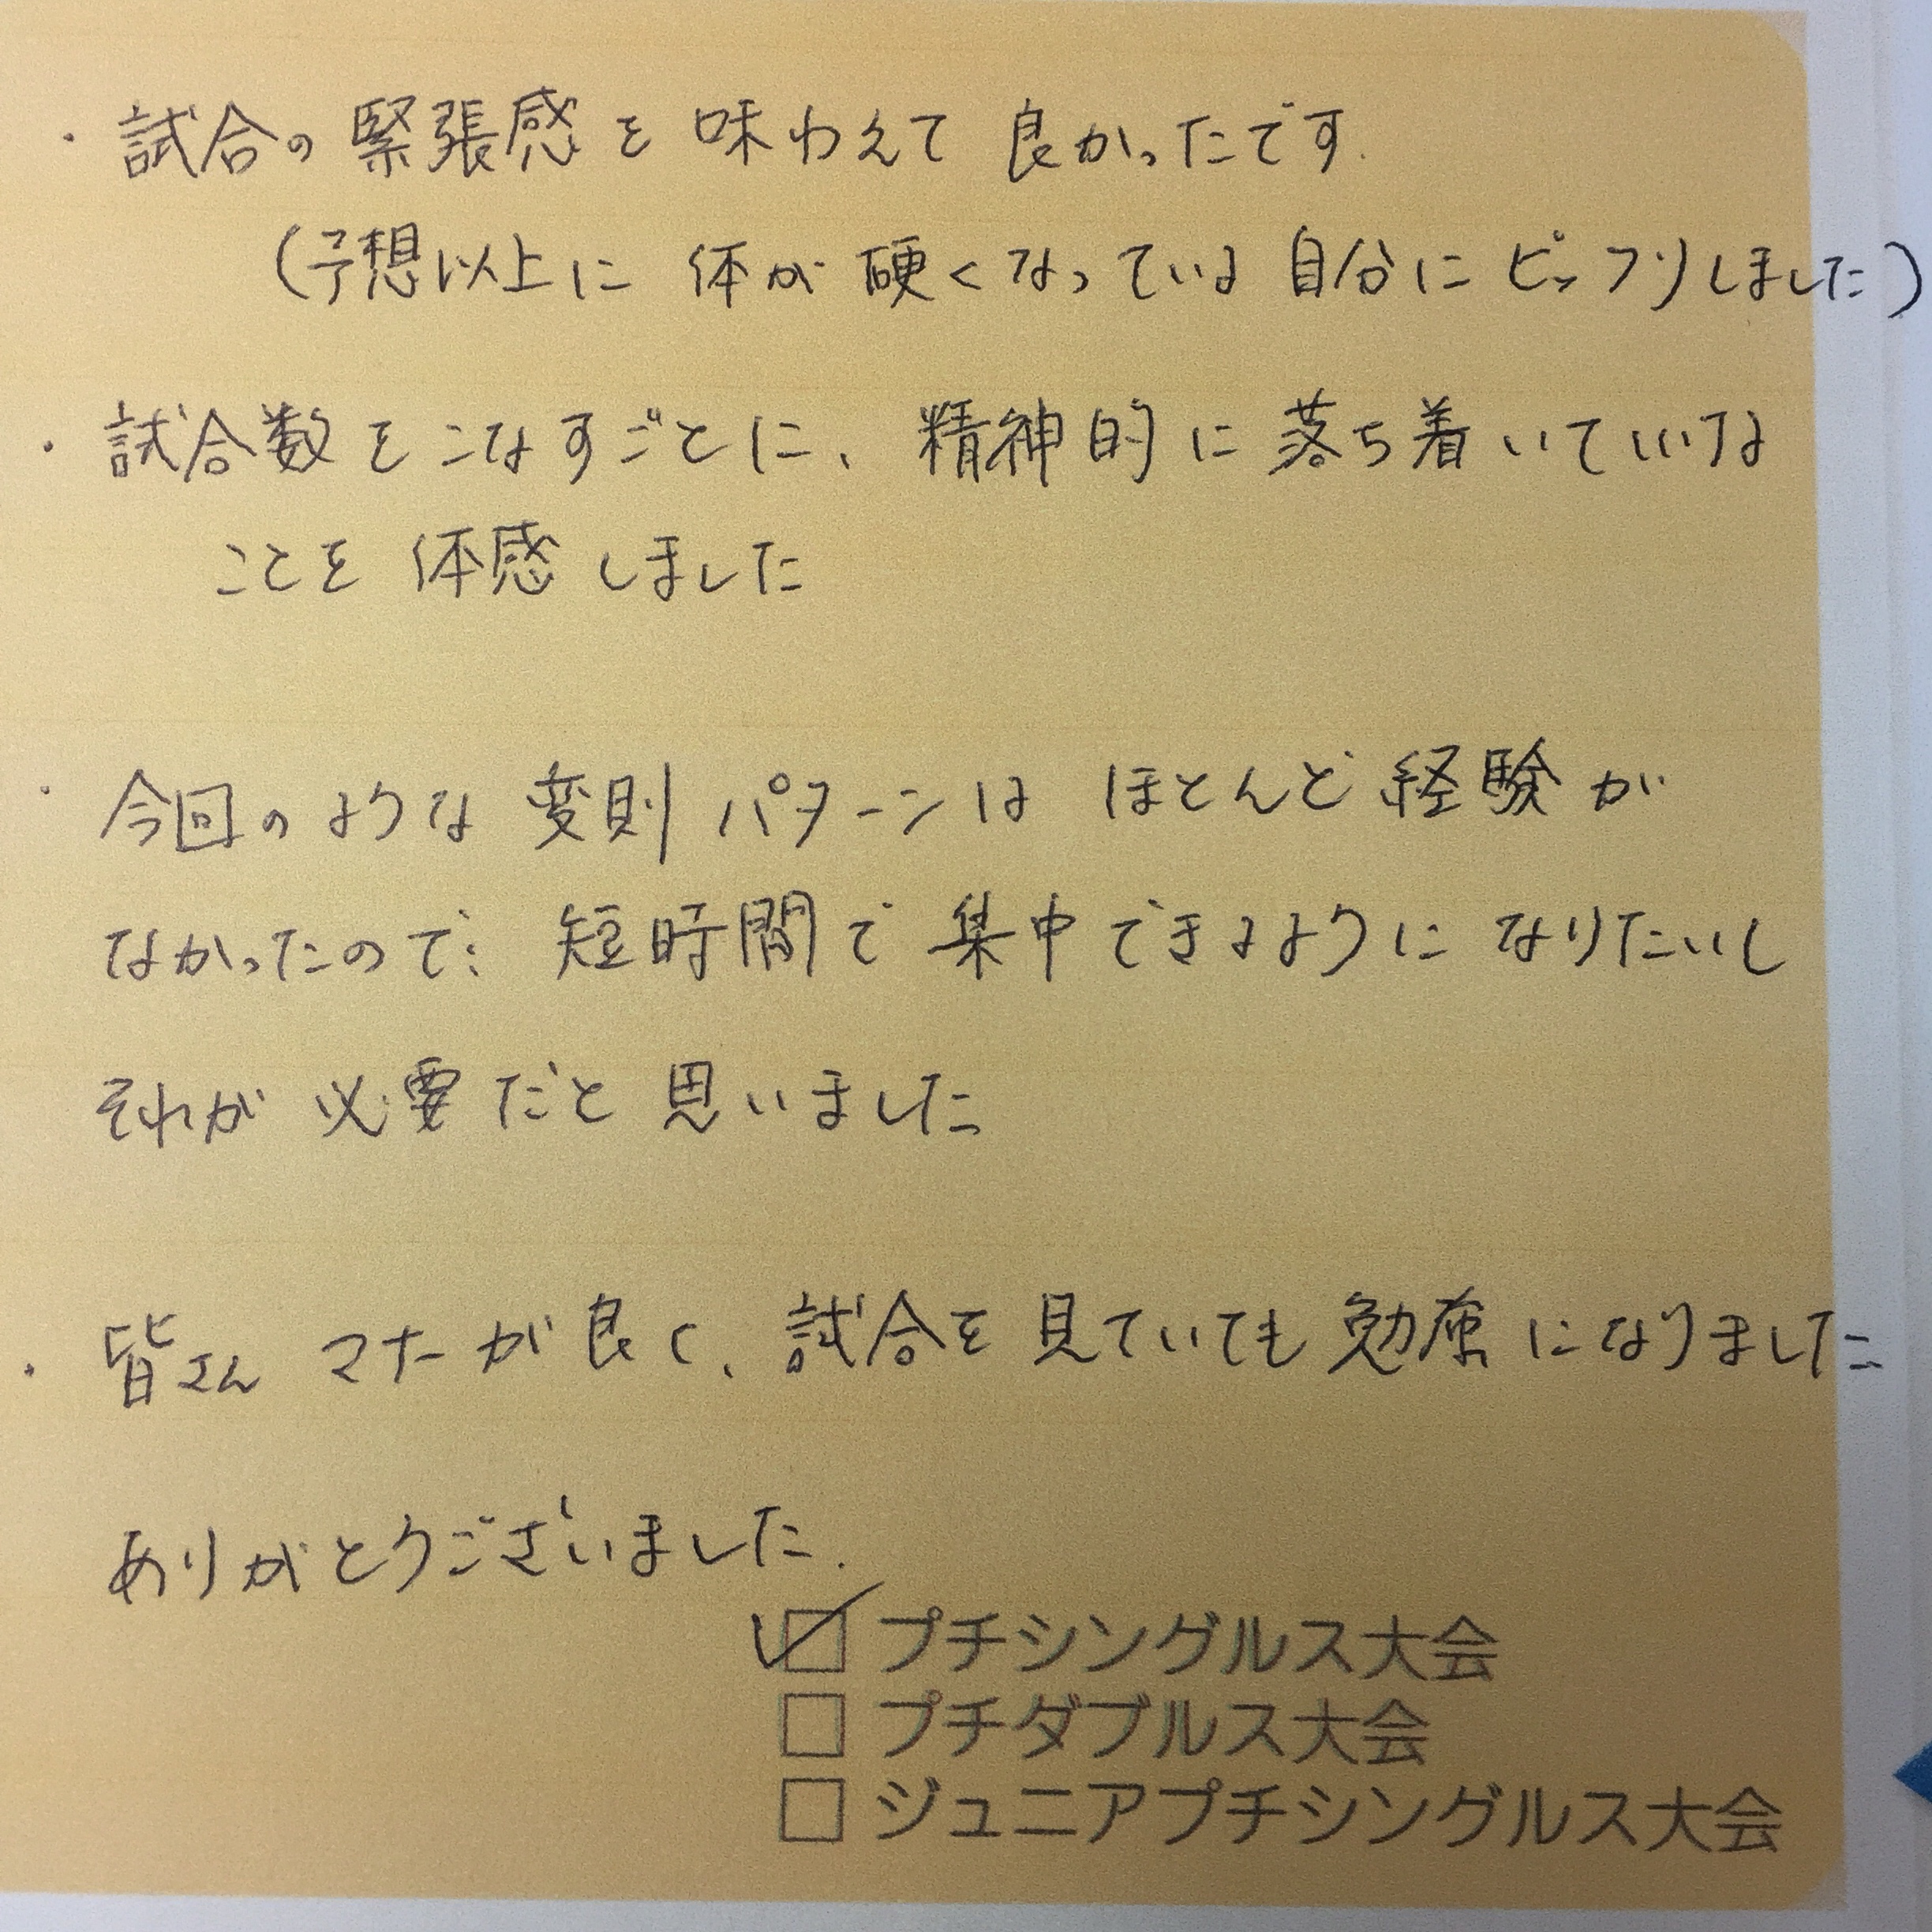 ・試合の緊張感を味わえて良かったです.
(予想以上に体が硬くなっている自分にビックリしました)
・試合数をこなすごとに、精神的に落ち着いていける
ことを体感しました
・今回のような変則パターンはほとんど経験が
なかったので、短時間で集中できるようになりたいし
それが必要だと思いました
・皆さんマナーが良く、試合を見ていても勉強になりました
ありがとうございました.
☑ プチシングルス大会
□ プチダブルス大会
□ ジュニアプチシングルス大会